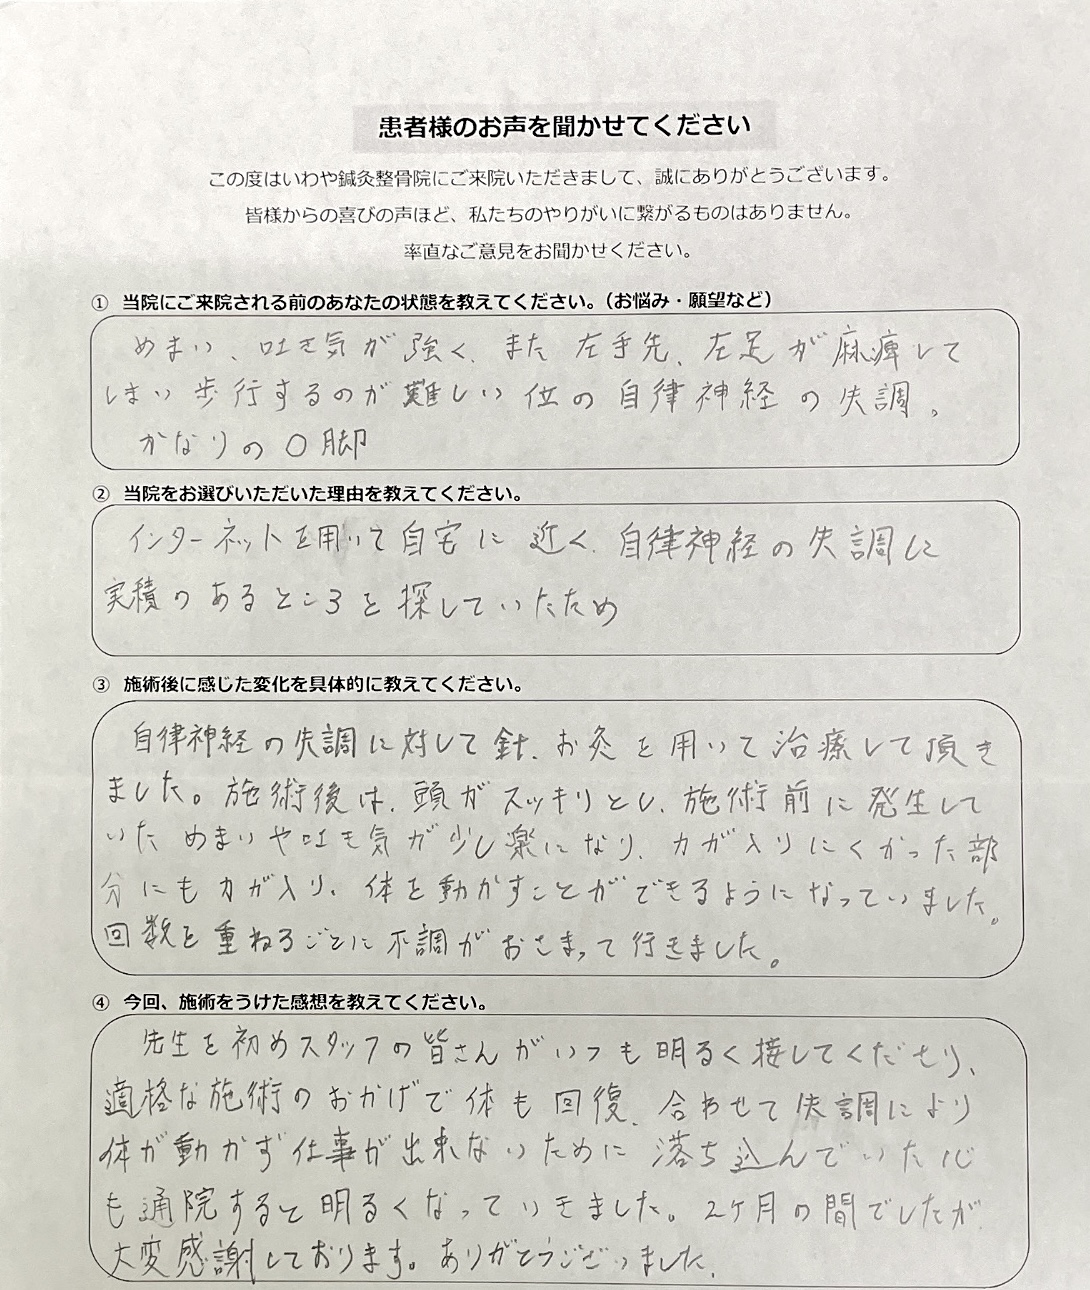 患者様のお声を聞かせてください
この度はいわや鍼灸整骨院にご来院いただきまして、誠にありがとうございます。
皆様からの喜びの声ほど、私たちのやりがいに繋がるものはありません。
率直なご意見をお聞かせください。
① 当院にご来院される前のあなたの状態を教えてください。（お悩み・願望など）
めまい、吐き気が強く、また左手先、左足が麻痺して
しまい歩行するのが難しい位の自律神経の失調。
かなりのO脚
② 当院をお選びいただいた理由を教えてください。
インターネットを用いて自宅に近く、自律神経の失調に
実積のあるところを探していたため
③ 施術後に感じた変化を具体的に教えてください。
自律神経の失調に対して針、お灸を用いて治療して頂き
ました。施術後は、頭がスッキリとし、施術前に発生して
いためまいや吐き気が少し楽になり、力が入りにくかった部
分にも力が入り、体を動かすことができるようになっていました。
回数を重ねるごとに不調がおさまって行きました。
④ 今回、施術をうけた感想を教えてください。
先生を初めスタッフの皆さんがいつも明るく接してくださり、
適格な施術のおかげで体も回復、合わせて失調により
体が動かず仕事が出来ないために落ち込んでいた心
も通院すると明るくなっていきました。2ケ月の間でしたが、
大変感謝しております。ありがとうございました。